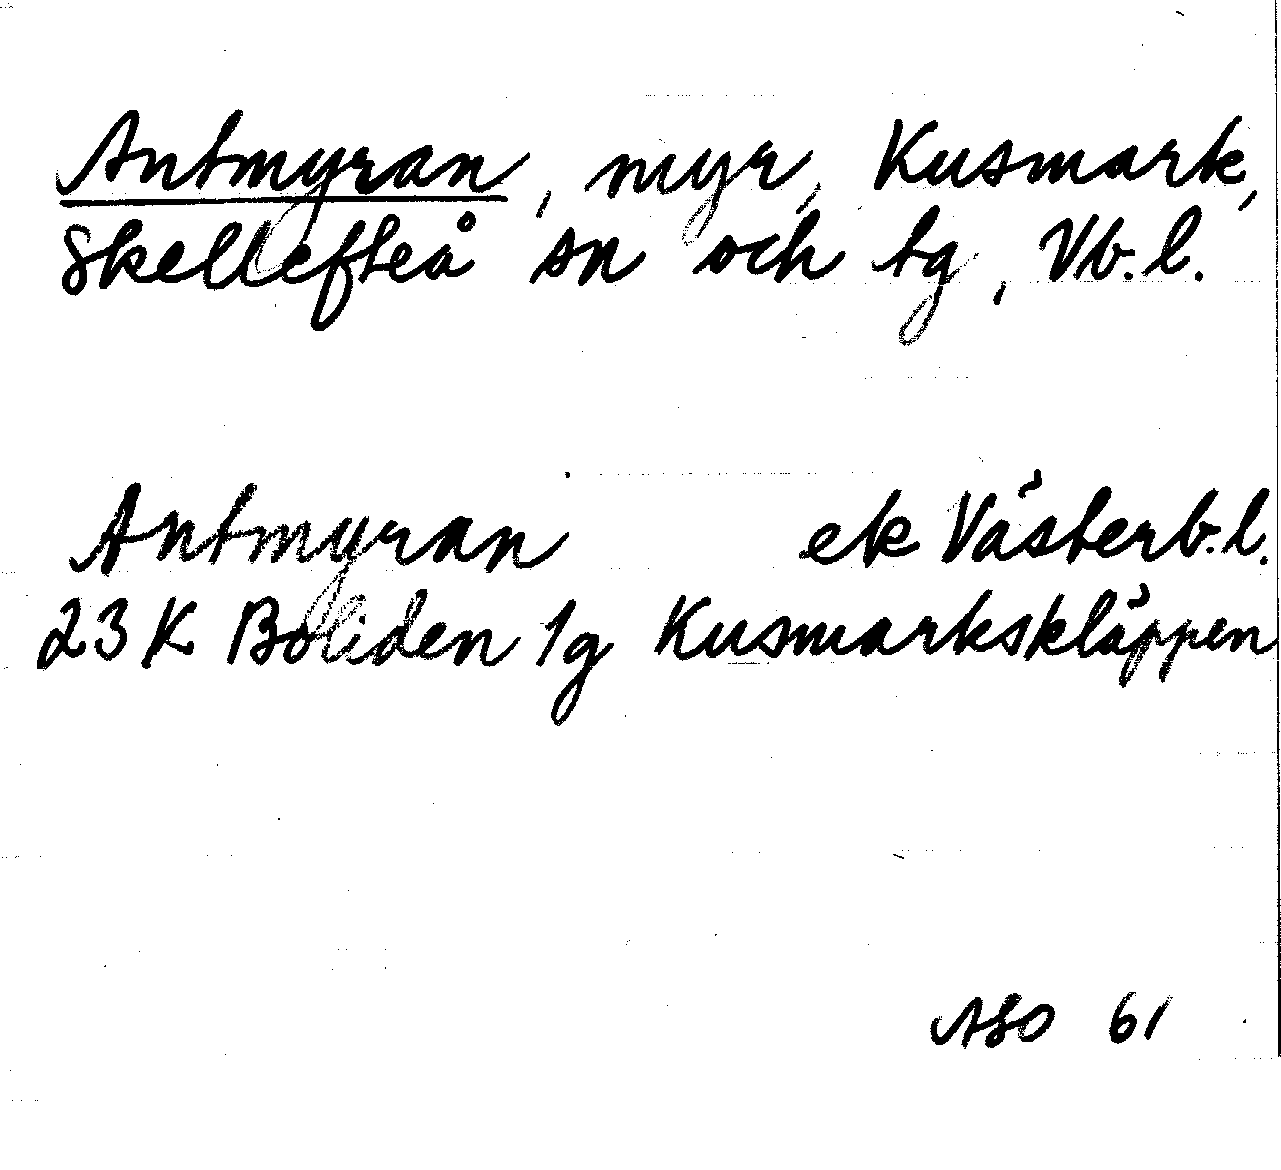 Antmyran, myr, Kusmark,
Skellefteå sn och tg, Vb.l.
Antmyran ek Västerb.l.
23 K Boliden 1g Kusmarkskläppen
ASO 61